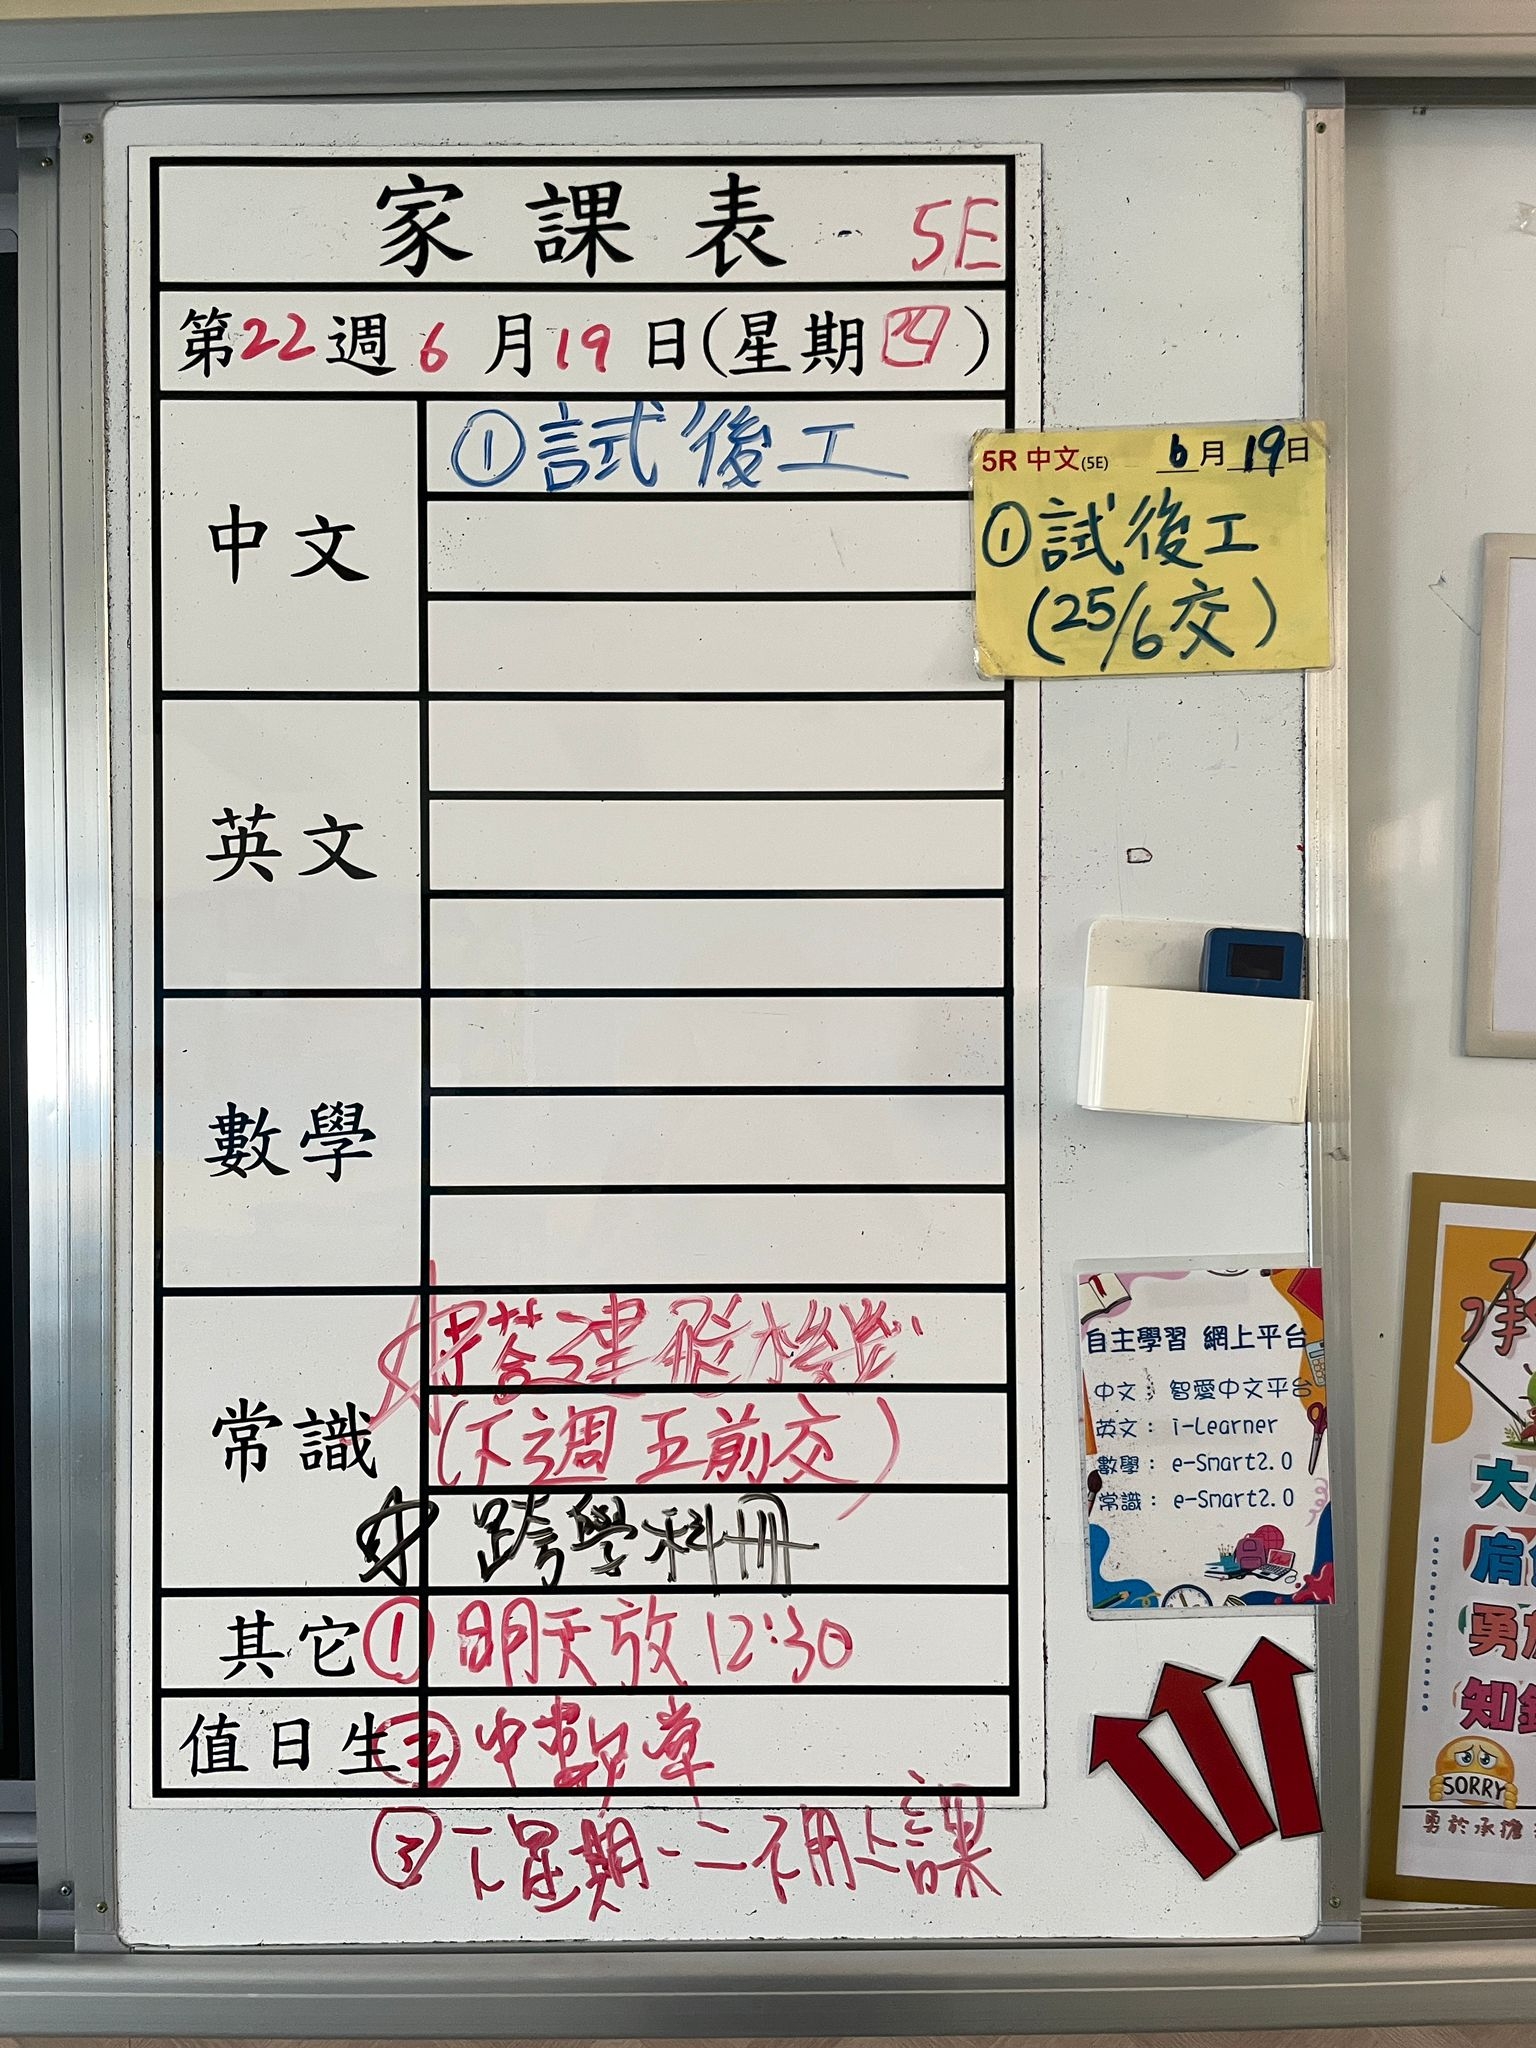 家課表 5E
第22週 6月19日(星期四)
中文
①試後工
5R 中文(5E) 6月19日
①試後工
(25/6交)
英文
數學
常識
搭建飛機
(下週五前交)
跨學科冊
其它
①明天放12:30
值日生
②中數常
③下星期一二不用上課
自主學習 網上平台
中文: 智愛中文平台
英文: i-Learner
數學: e-Smart2.0
常識: e-Smart2.0
大
肩
勇於
知錯
SORRY
勇於承擔